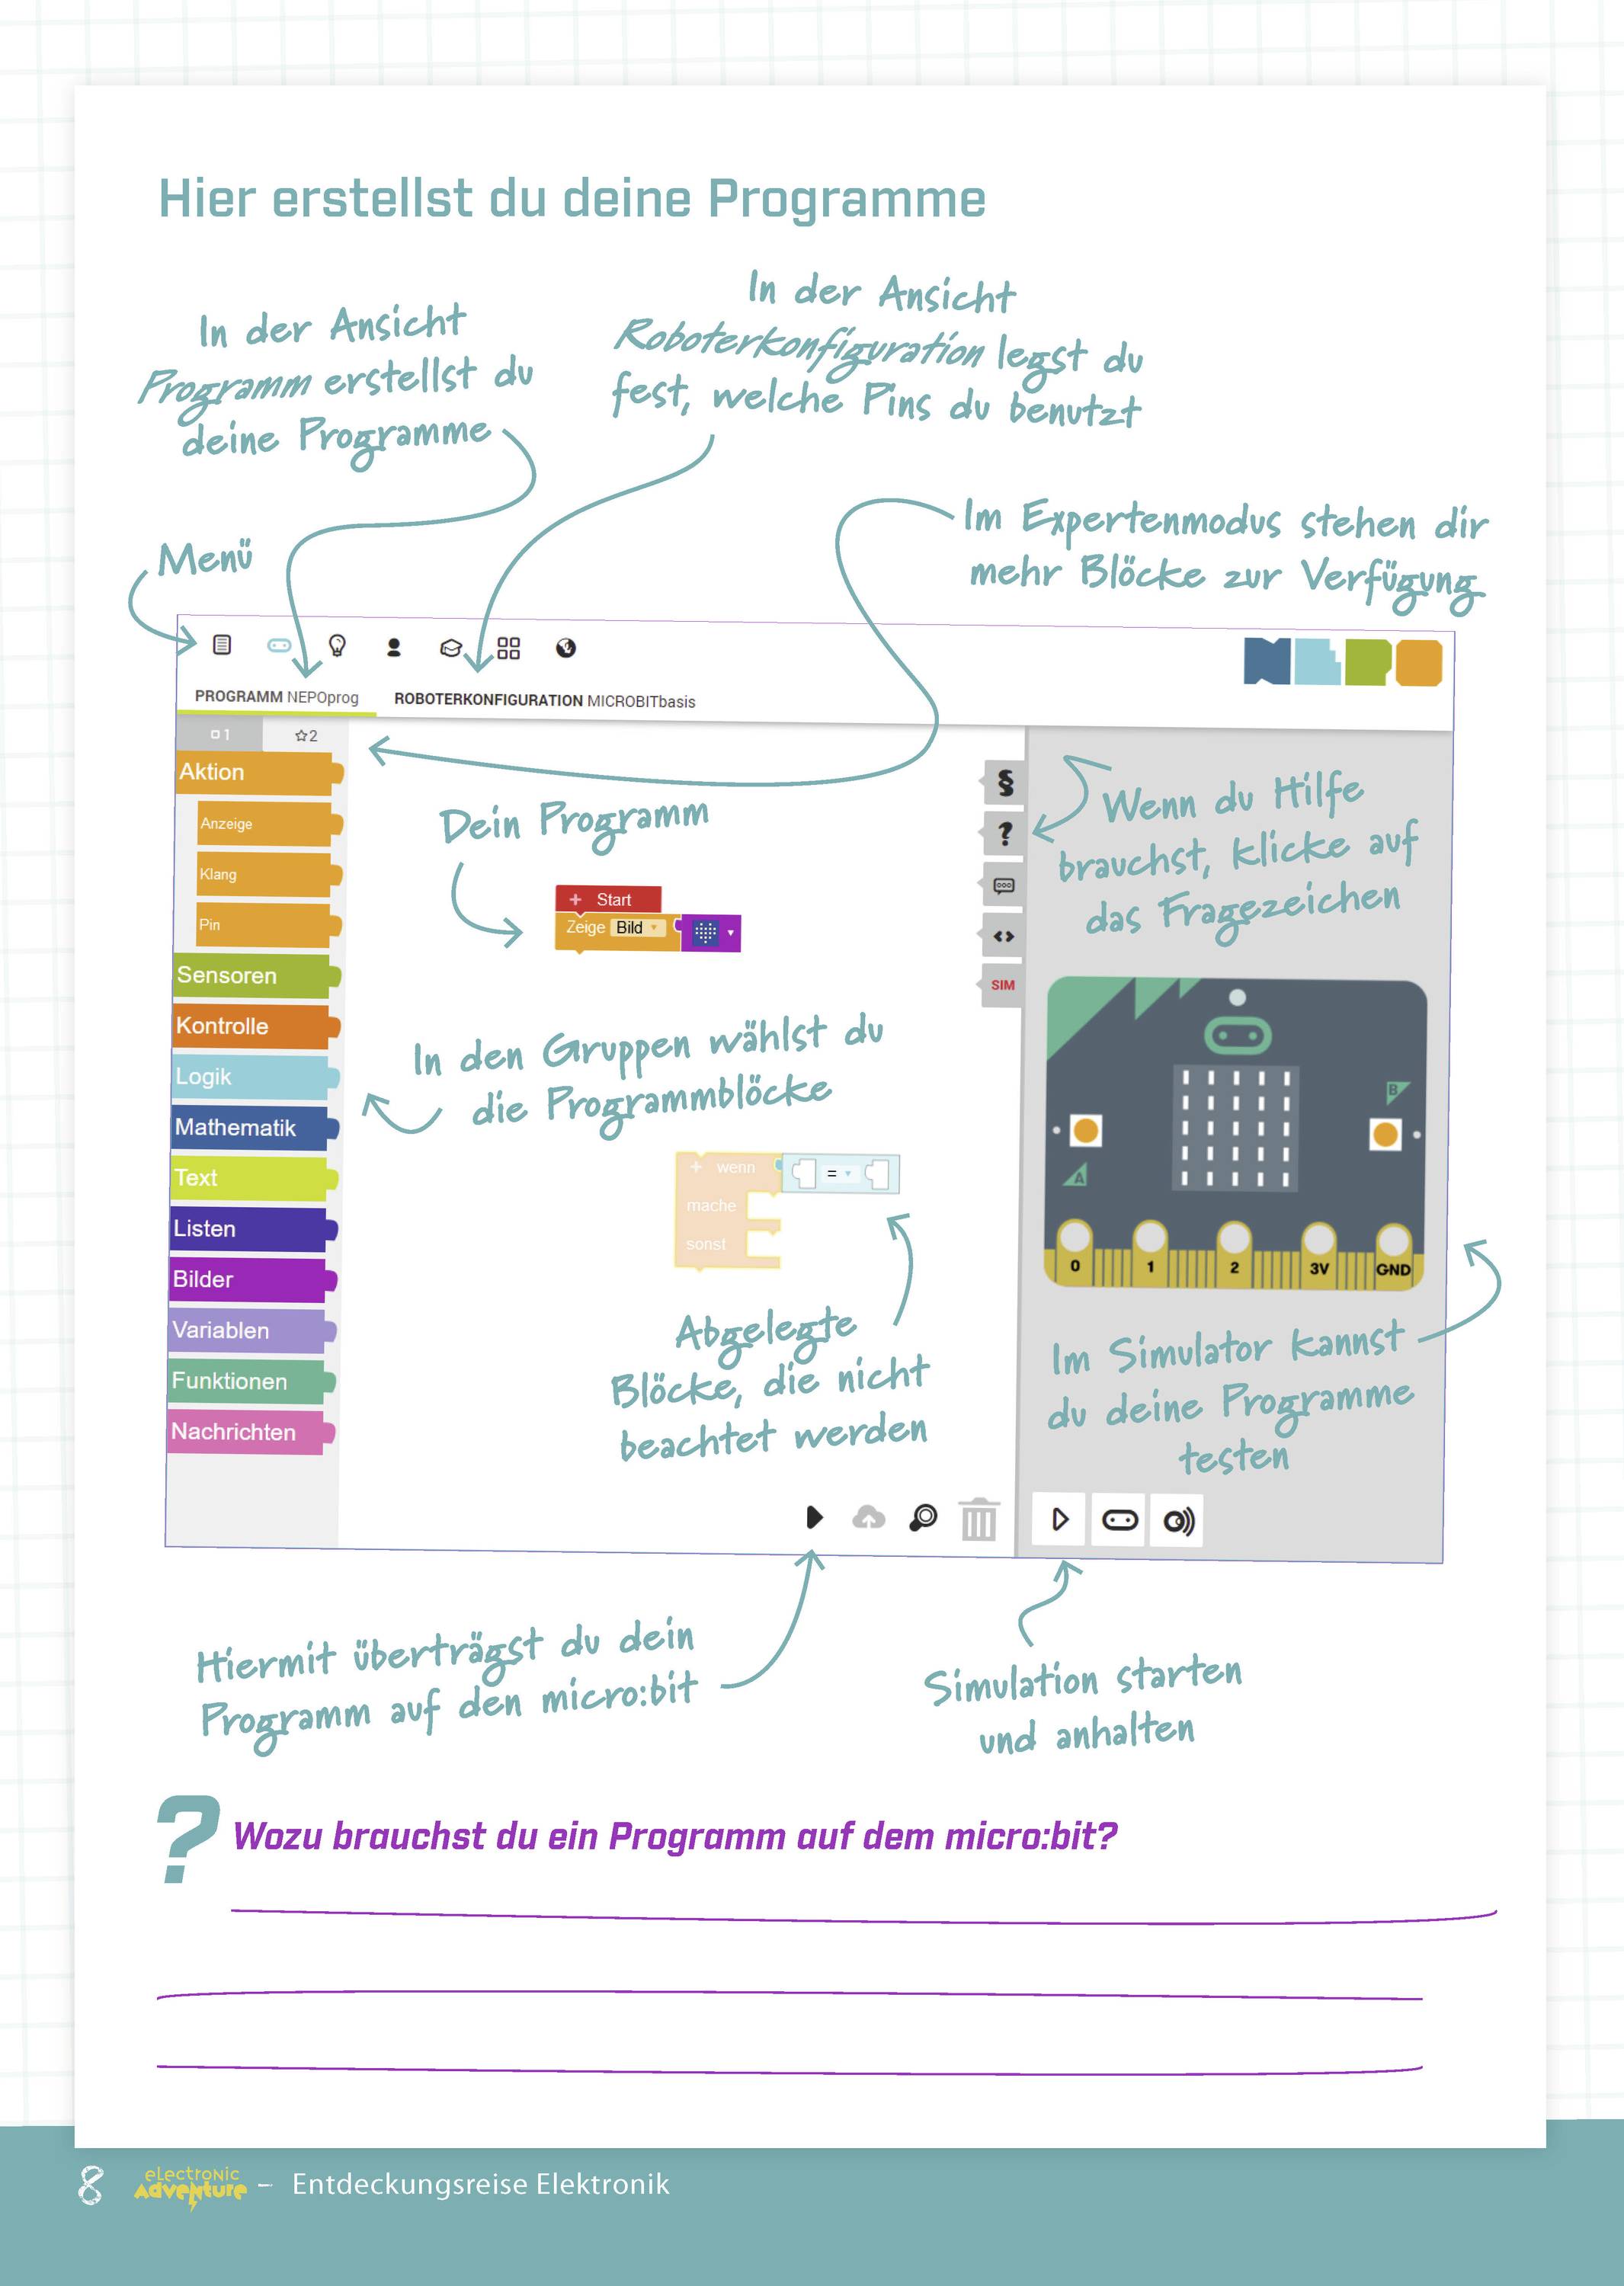 Hier erstellst du deine Programme
In der Ansicht
Programm erstellst du
deine Programme
In der Ansicht
Roboterkonfiguration legst du
fest, welche Pins du benutzt
Im Expertenmodus stehen dir
mehr Blöcke zur Verfügung
Menü
PROGRAMM NEPOprog
ROBOTERKONFIGURATION MICROBITbasis
1
2
Aktion
Anzeige
Klang
Pin
Sensoren
Kontrolle
Logik
Mathematik
Text
Listen
Bilder
Variablen
Funktionen
Nachrichten
Dein Programm
+ Start
Zeige Bild
In den Gruppen wählst du
die Programmblöcke
+ wenn
=
mache
sonst
Abgelegte
Blöcke, die nicht
beachtet werden
§
?
SIM
Wenn du Hilfe
brauchst, klicke auf
das Fragezeichen
B
A
0 1 2 3V GND
Im Simulator kannst
du deine Programme
testen
Hiermit überträgst du dein
Programm auf den micro:bit
Simulation starten
und anhalten
? Wozu brauchst du ein Programm auf dem micro:bit?
8 electronic Adventure – Entdeckungsreise Elektronik